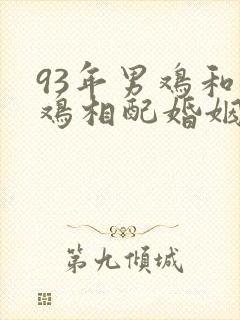 93年男鸡和
鸡相配婚姻
第九倾城